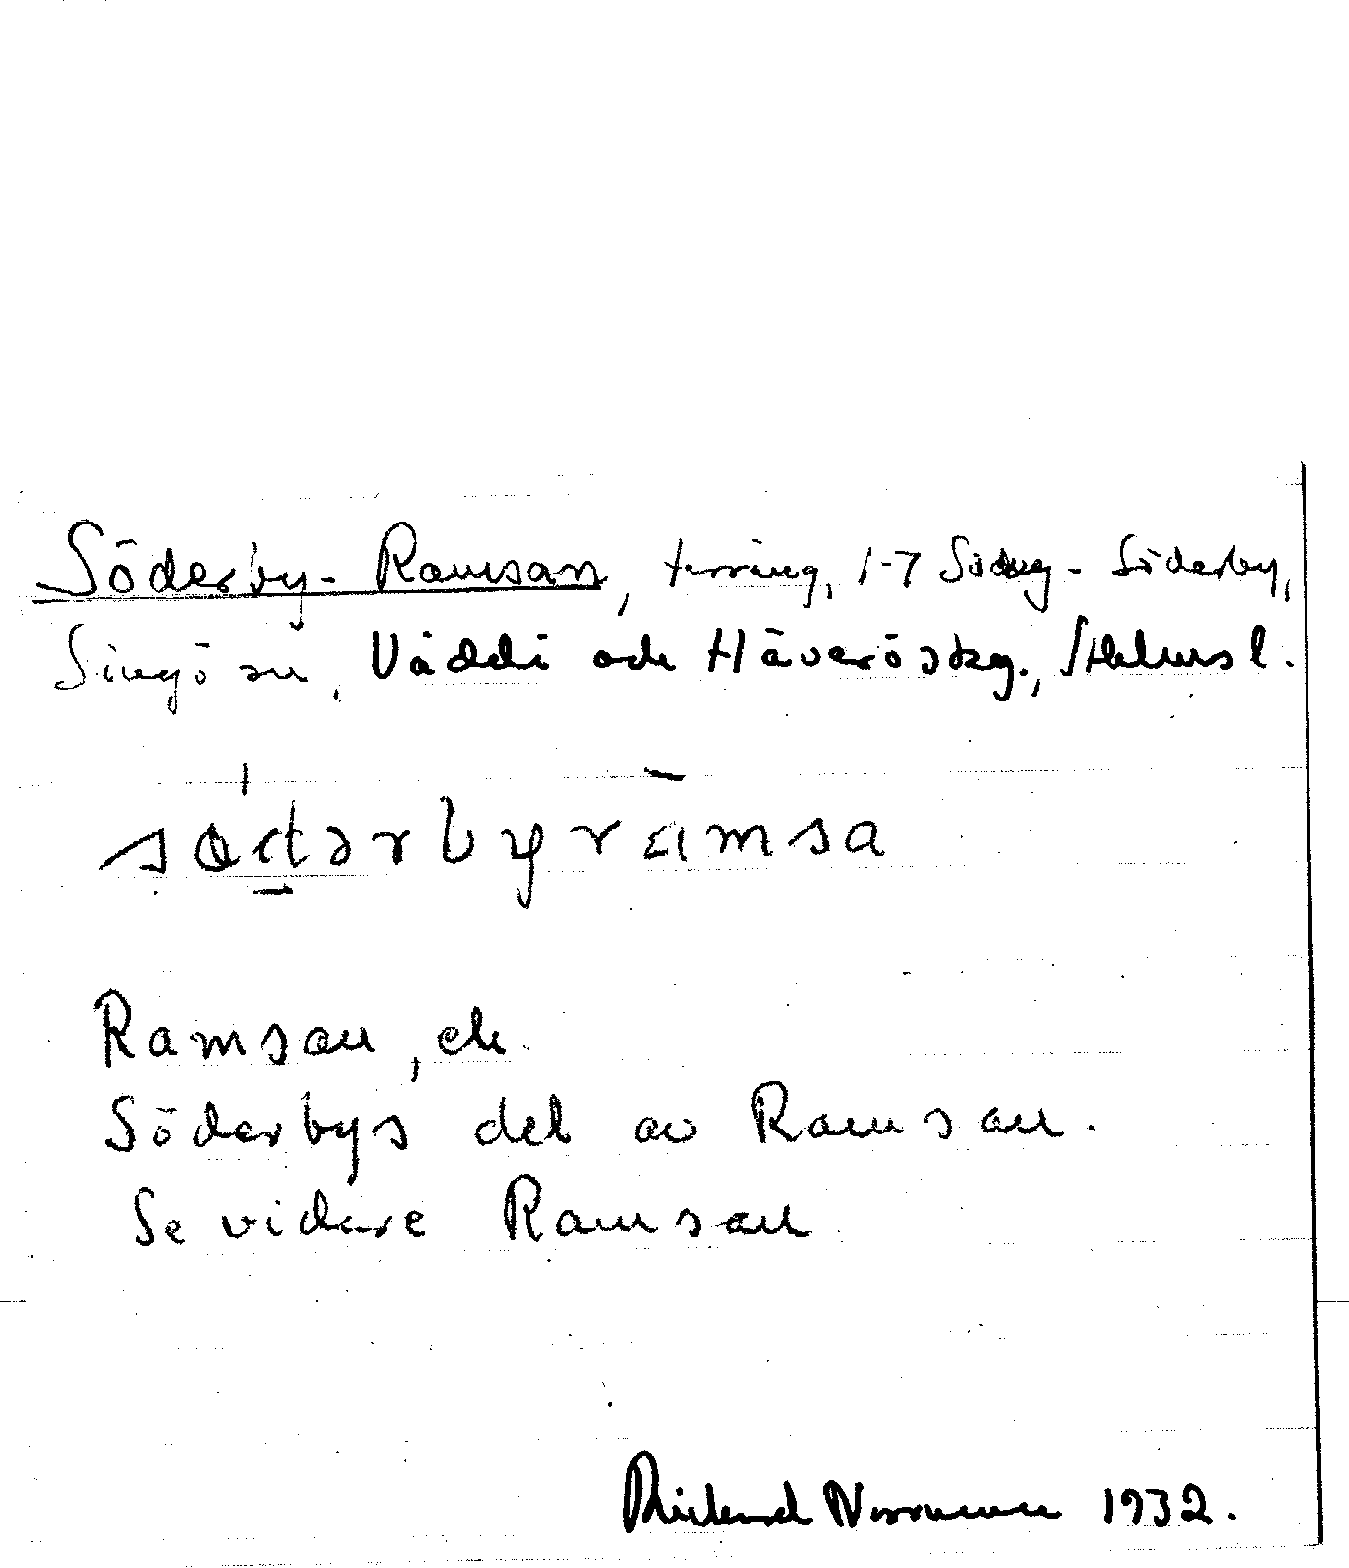 Söderby-Ramsan, terräng, 1-7 Söderby,
Singö sn, Väddö och Häverö skg., Sthlms l.
sǿdərbyrāmsa
Ramsan, ek.
Söderbys del av Ramsan.
Se vidare Ramsan
Rickard Norrman 1932.